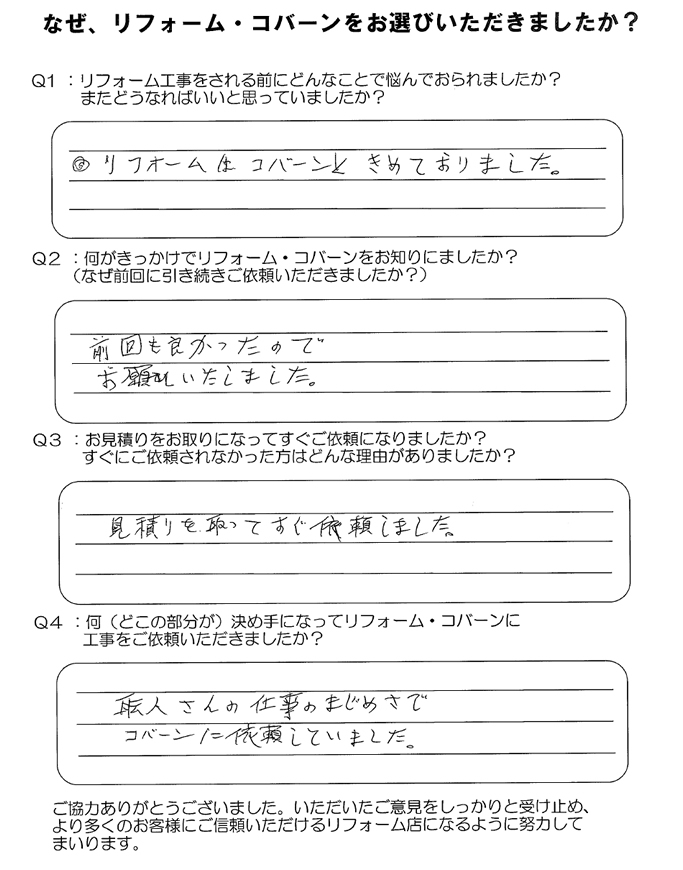 なぜ、リフォーム・コバーンをお選びいただきましたか？
Q1 ：リフォーム工事をされる前にどんなことで悩んでおられましたか？
またどうなればいいと思っていましたか？
◎リフォームはコバーンと きめておりました。
Q2 ：何がきっかけでリフォーム・コバーンをお知りにましたか？
（なぜ前回に引き続きご依頼いただきましたか？）
前回も良かったので
お願いいたしました。
Q3 ：お見積りをお取りになってすぐご依頼になりましたか？
すぐにご依頼されなかった方はどんな理由がありましたか？
見積りを取ってすぐ依頼しました。
Q4 ：何（どこの部分が）決め手になってリフォーム・コバーンに
工事をご依頼いただきましたか？
職人さんの仕事のまじめさで
コバーンに依頼していました。
ご協力ありがとうございました。いただいたご意見をしっかりと受け止め、
より多くのお客様にご信頼いただけるリフォーム店になるように努力して
まいります。